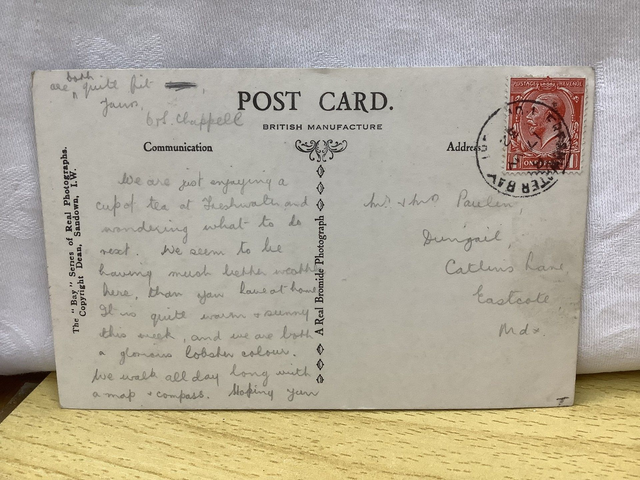 are both quite fit
Yours
Col. Chappell
POST CARD.
BRITISH MANUFACTURE
Communication
Address
We are just enjoying a
cup of tea at Freshwater and
wondering what to do
next. We seem to be
having much better weather
here, than you have at home
It is quite warm & sunny
this week, and we are both
a glorious lobster colour.
We walk all day long with
a map & compass. Hoping your
The "Bay" Series of Real Photographs.
Copyright Dean, Sandown, I.W.
A Real Bromide Photograph
Mr. & Mrs Paulen,
Catlins Lane
Eastcote
Mdx.
POSTAGE REVENUE
WATER BAY
I